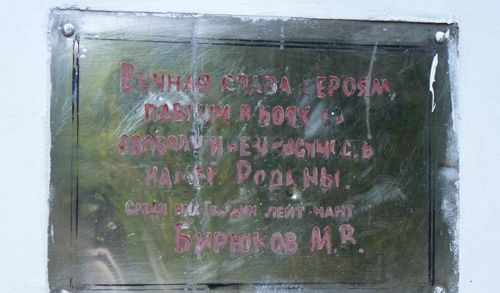 Вечная слава героям,
павшим в боях за
свободу и независимость
нашей Родины.
Среди них Гвардии лейтенант
Бирюков М.В.